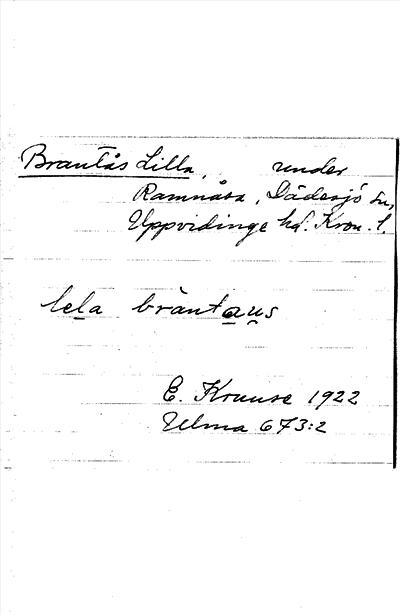 Brantås Lilla, under
Ramnåsa, Dädesjö sn,
Uppvidinge hd. Kron. l.
lela bräntaus
E. Kruuse 1922
Ulma 673:2